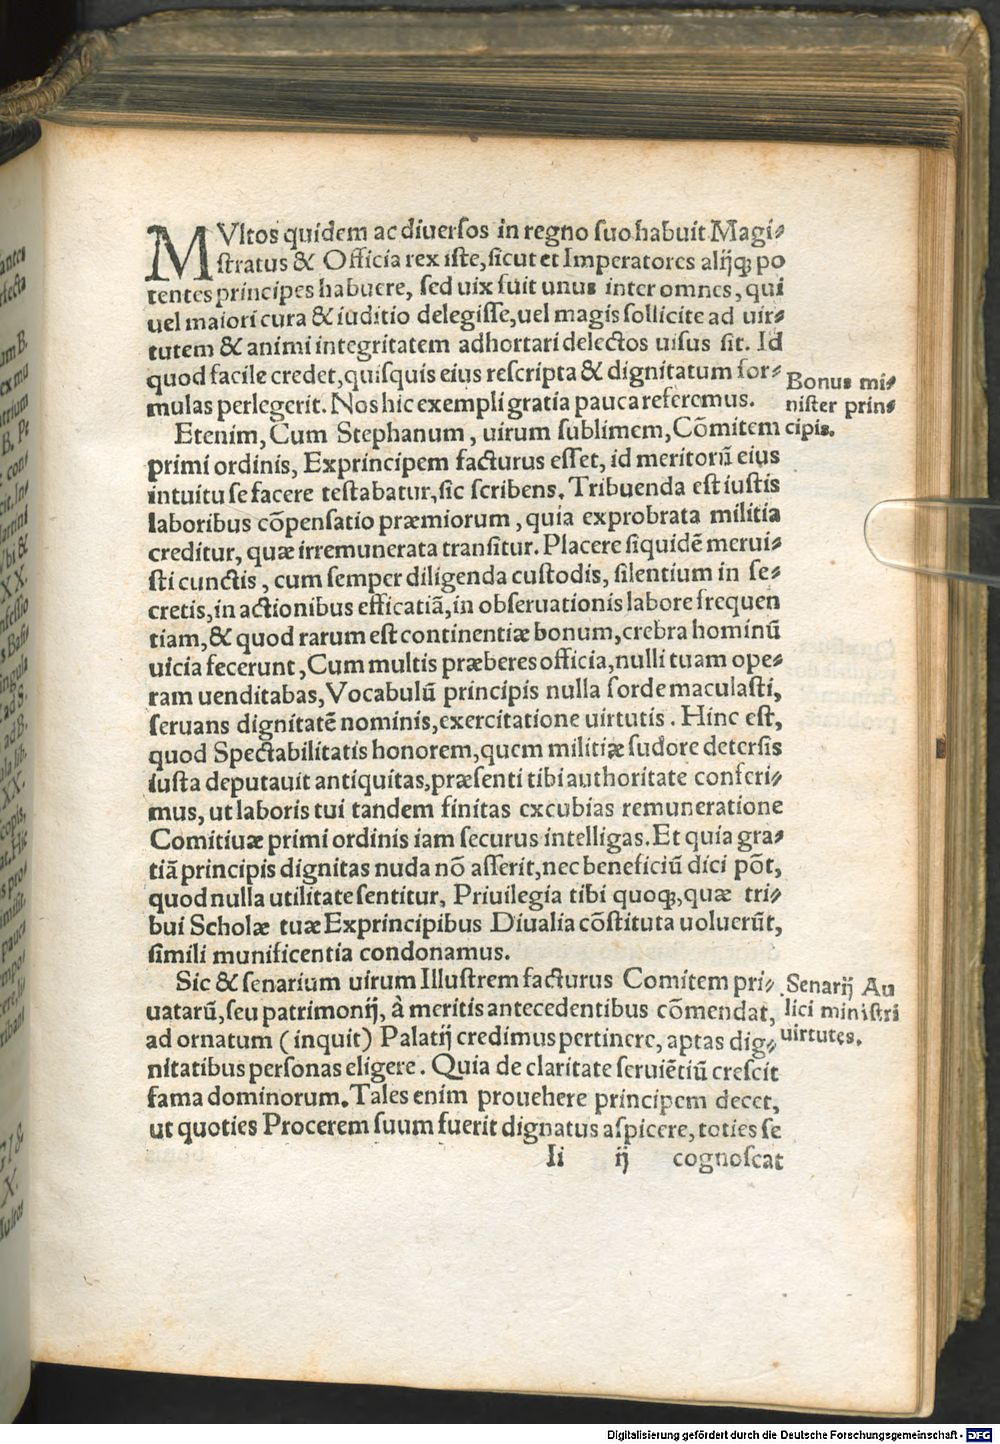 MVltos quidem ac diuersos in regno suo habuit Magi⸗
stratus & Officia rex iste, sicut et Imperatores alijq; po
tentes principes habuere, sed uix fuit unus inter omnes, qui
uel maiori cura & iuditio delegisse, uel magis sollicite ad uir⸗
tutem & animi integritatem adhortari delectos uisus sit. Id
quod facile credet, quisquis eius rescripta & dignitatum for⸗
mulas perlegerit. Nos hic exempli gratia pauca referemus.
Bonus mi⸗
nister prin⸗
cipis.
Etenim, Cum Stephanum, uirum sublimem, Cōmitem
primi ordinis, Exprincipem facturus esset, id meritorū eius
intuitu se facere testabatur, sic scribens. Tribuenda est iustis
laboribus cōpensatio præmiorum, quia exprobrata militia
creditur, quæ irremunerata transitur. Placere siquidē merui⸗
sti cunctis, cum semper diligenda custodis, silentium in se⸗
cretis, in actionibus efficatiā, in obseruationis labore frequen
tiam, & quod rarum est continentiæ bonum, crebra hominū
uicia fecerunt, Cum multis præberes officia, nulli tuam ope⸗
ram uenditabas, Vocabulū principis nulla sorde maculasti,
seruans dignitatē nominis, exercitatione uirtutis. Hinc est,
quod Spectabilitatis honorem, quem militiæ sudore detersis
iusta deputauit antiquitas, præsenti tibi authoritate conferi⸗
mus, ut laboris tui tandem finitas excubias remuneratione
Comitiuæ primi ordinis iam securus intelligas. Et quia gra⸗
tiā principis dignitas nuda nō asserit, nec beneficiū dici pōt,
quod nulla utilitate sentitur, Priuilegia tibi quoq;, quæ tri⸗
bui Scholæ tuæ Exprincipibus Diualia cōstituta uoluerūt,
simili munificentia condonamus.
Sic & senarium uirum Illustrem facturus Comitem pri⸗
uatarū, seu patrimonij, à meritis antecedentibus cōmendat,
ad ornatum (inquit) Palatij credimus pertinere, aptas dig⸗
nitatibus personas eligere. Quia de claritate seruiētiū crescit
fama dominorum. Tales enim prouehere principem decet,
ut quoties Procerem suum fuerit dignatus aspicere, toties se
Senarij Au
lici ministri
uirtutes.
Ii ij cognoscat
Digitalisierung gefördert durch die Deutsche Forschungsgemeinschaft - DFG